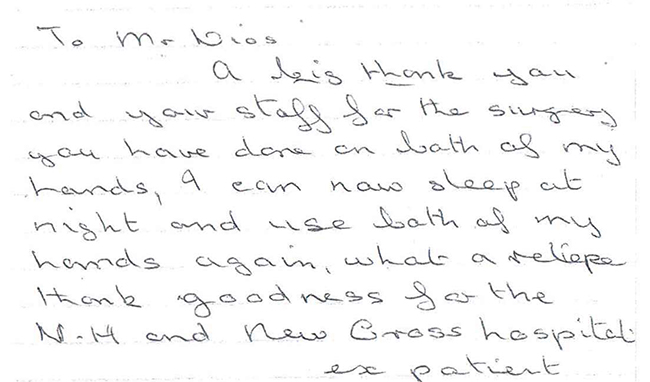 To Mr Dios
A big thank you
and your staff for the surgery
you have done on both of my
hands, I can now sleep at
night and use both of my
hands again, what a reliefe
thank goodness for the
N.H and New Cross hospital
ex patient